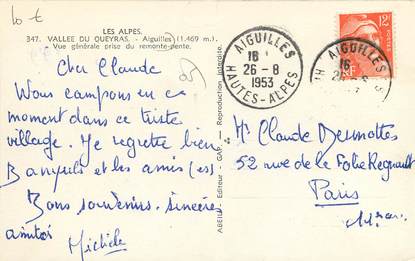 10 €
LES ALPES.
347. VALLEE DU QUEYRAS. - Aiguilles (1.469 m.)
- Vue générale prise du remonte-pente.
Cher Claude
Nous campons en ce
moment dans ce triste
village. Je regrette bien
Banyuls et les amis (es)
Bons souvenirs. sincères
amitiés
Michèle
ABEIL Editeur - GAP. - Reproduction interdite.
AIGUILLES
18
26-8
1953
HAUTES-ALPES
12F
RF
AIGUILLES
Mr Claude Desmottes
52 rue de la Folie Regnault
Paris